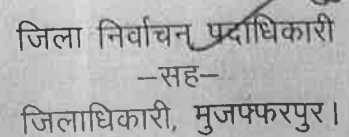 जिला निर्वाचन पदाधिकारी
–सह–
जिलाधिकारी, मुजफ्फरपुर।